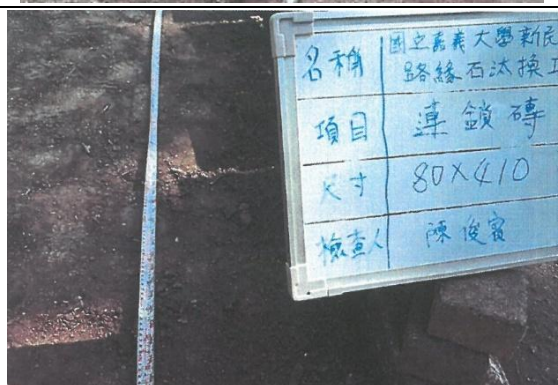 名稱 國立嘉義大學新民
路緣石汰換工
項目 連鎖磚
尺寸 80X410
檢查人 陳俊賓